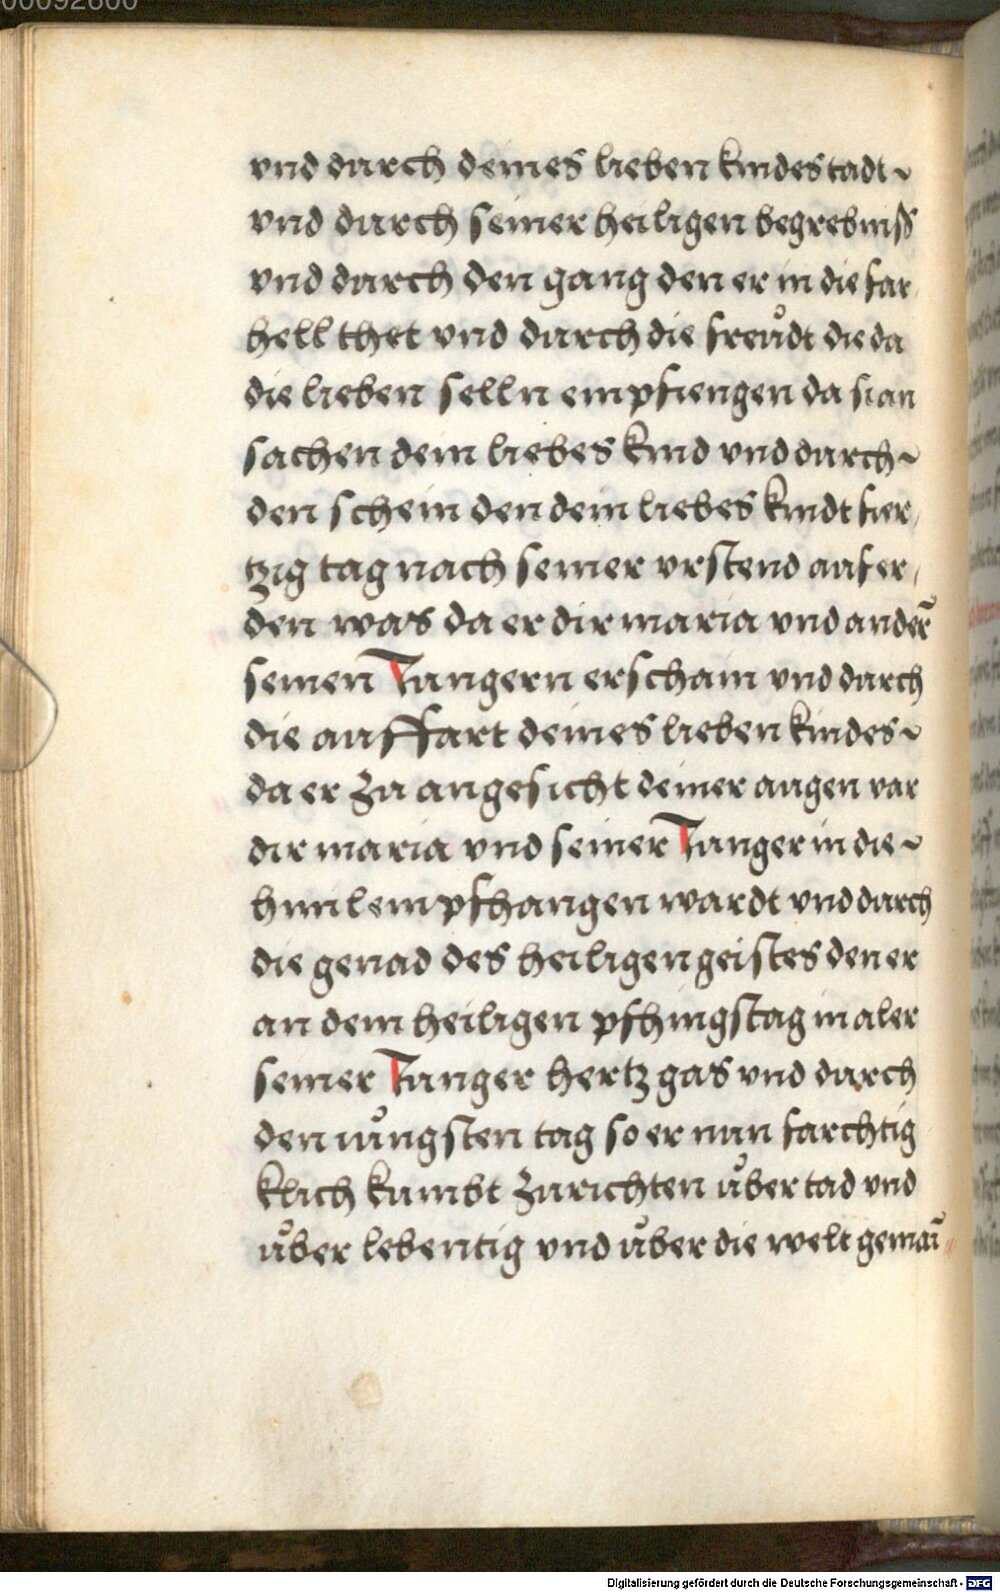 00092800
vnd durch deines lieben kindes tadt~
vnd durch seiner heiligen begrebniſs
vnd durch den gang den er in die for,
hell thet vnd durch die freůdt die da
die lieben selln empfiengen da si an
sachen dein liebes kind vnd durch~
den schein den dein liebes kindt fier,
tzig tag nach seiner vrstend auf er,
den was da er dir maria vnd anderñ
seinen Iungern erschain vnd durch
die auffart deines lieben kindes~
da er zu angesicht deiner augen var
dir maria vnd seiner Iunger in die~
himl empfhangen wardt vnd durch
die genad des heiligen geistes den er
an dem heiligen pfhingstag in aler
seiner Iunger hertz gas vnd durch
den iůngsten tag so er nun forchtig
klich kumbt zurichten ůber tod vnd
ůber lebentig vnd ůber die welt gemai
Digitalisierung gefördert durch die Deutsche Forschungsgemeinschaft - DFG